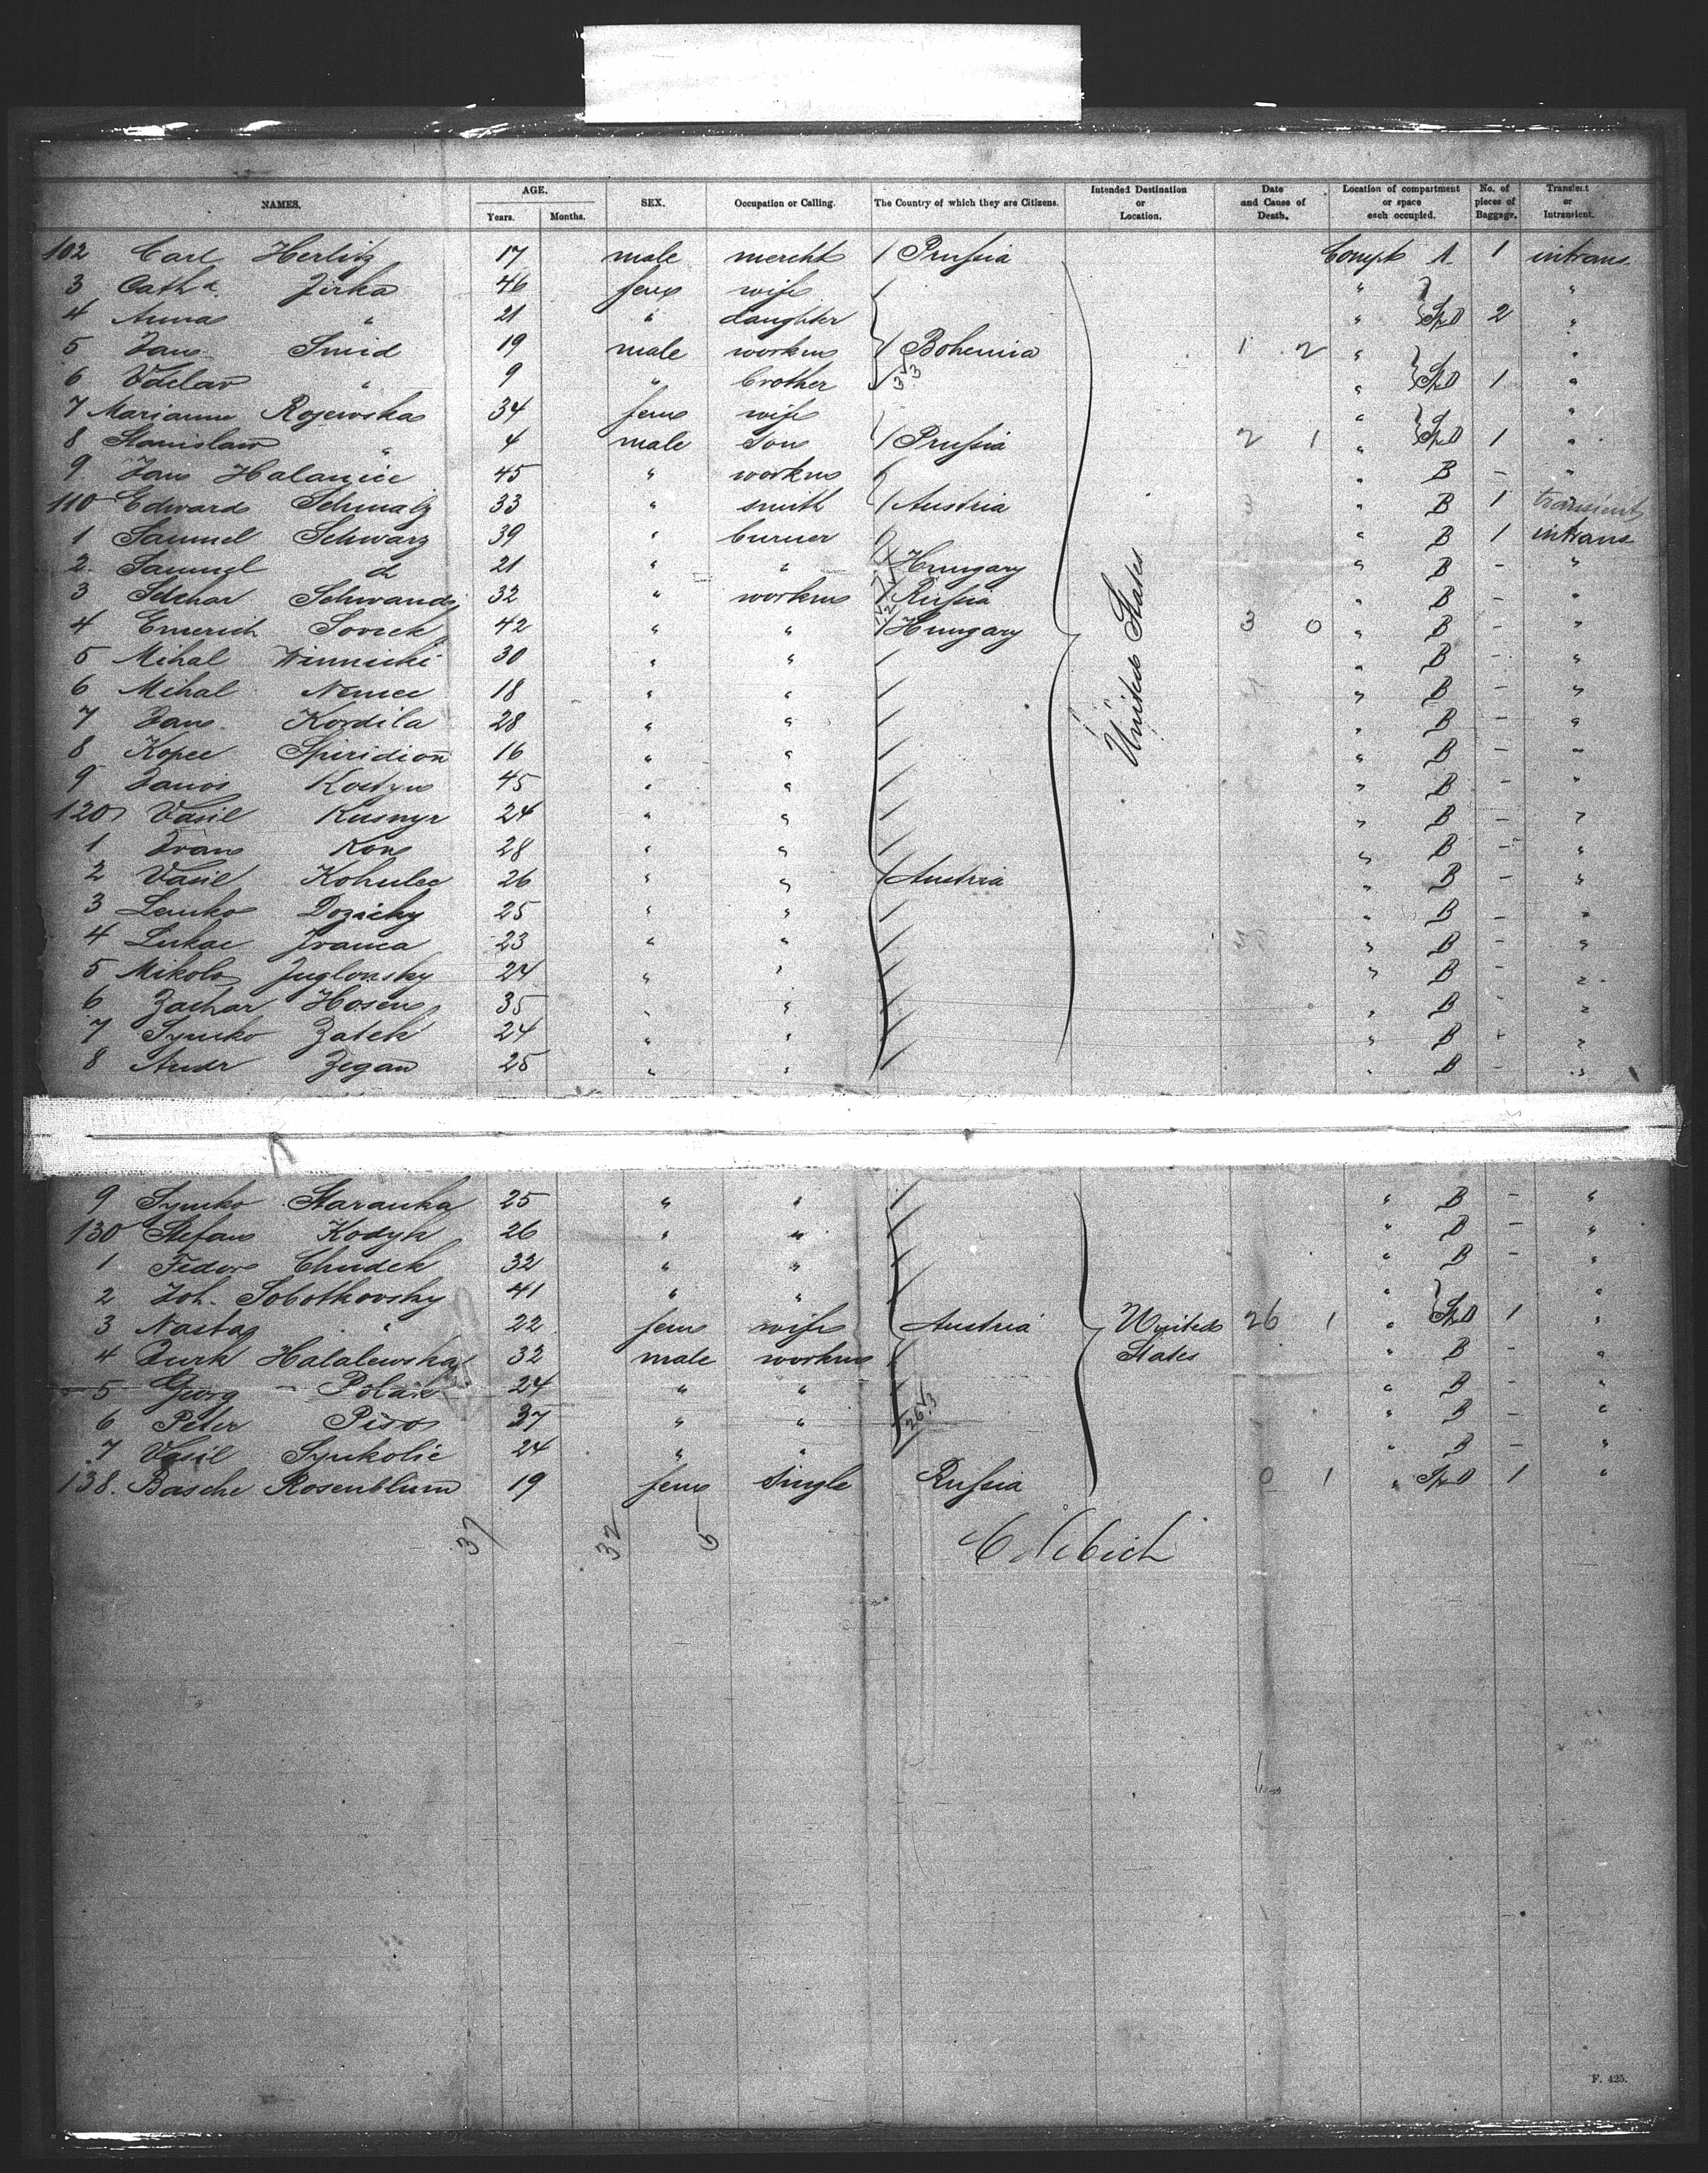 NAMES. AGE. Years. Months. SEX. Occupation or Calling. The Country of which they are Citizens. Intended Destination or Location. Date and Cause of Death. Location of compartment or space each occupied. No. of pieces of Baggage. Transient or Intransient.
102 Carl Herlitz 17 male mercht / Prussia Compt A 1 intrans
3 Cath a. Jirka 46 fem wife / " "
4 Anna " 21 " daughter " SpD 2 "
5 Jan Smid 19 male workm / Bohemia 1 2 " "
6 Vaclav " 9 " brother / " SpD 1 "
7 Marianne Rojewska 34 fem wife " "
8 Stanislaw " 4 male son / Prussia 2 1 " SpD 1 "
9 Jan Halanice 45 " workm " B - "
110 Edward Schmalz 33 " smith / Austria " B 1 transient
1 Samuel Schwarz 39 " " B 1 intrans
2 Samuel do 21 " " / Hungary " B - "
3 Schwandz 32 " workm / Russia " B - "
4 Emerich Sovick 42 " " / Hungary 3 0 " B - "
5 Mihal Winnicki 30 " " / " B - "
6 Mihal Nemec 18 " " / " B - "
7 Jan Kordila 28 " " / " B - "
8 Kopec Spiridion 16 " " / " B - "
9 Janos Kostyn 45 " " / " B - "
120 Vasil Kusnyr 24 " " / " B - "
1 Ivan Kon 28 " " / " B - "
2 Vasil Kohulec 26 " " / Austria " B - "
3 Lemko Dozichy 25 " " / " B - "
4 Lukac Franca 23 " " / " B - "
5 Mikola Juglonsky 24 " " / " B - "
6 Zachar Hosen 35 " " / " B - "
7 Symko Zatek 24 " " / " B - "
8 Andr Zegan 25 " " / " B - "
United States
9 Symko Staranka 25 " " / " B - "
130 Stefan Kodyk 26 " " / " B - "
1 Fedor Chudek 32 " " / " B - "
2 Joh. Sobotkovsky 41 " " / " "
3 Nasta " 22 fem wife Austria United 26 1 " SpD 1 "
4 Jurk Halalewska 32 male workm / States " B - "
5 Georg Polak 24 " " / " B - "
6 Peter Piso 37 " " / " B - "
7 Vasil Synkolic 24 " " / " B - "
138. Basche Rosenblum 19 fem single Russia 0 1 " SpD 1 "
37 32 5
F. 425.